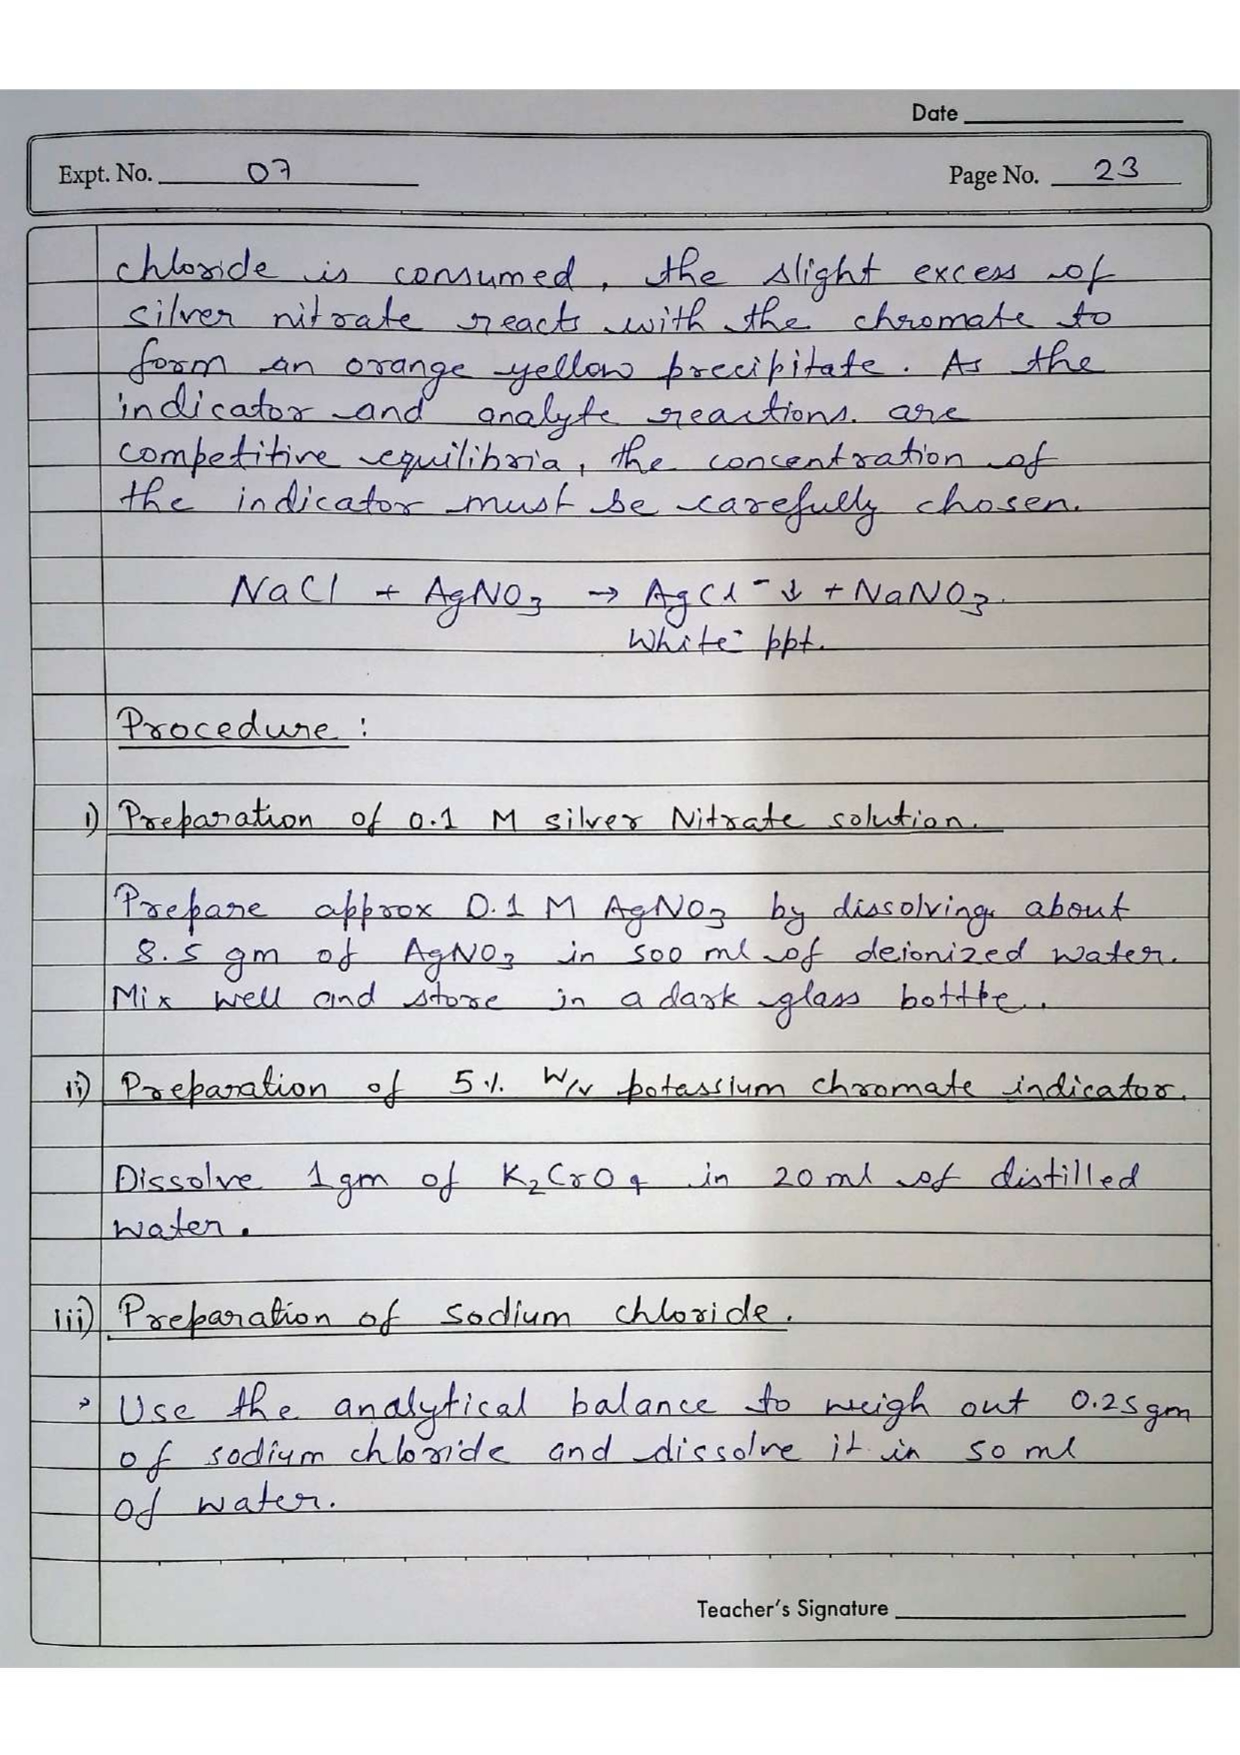 Date
Expt. No. 07
Page No. 23
chloride is consumed, the slight excess of
silver nitrate reacts with the chromate to
form an orange yellow precipitate. As the
indicator and analyte reactions. are
competitive equilibria, the concentration of
the indicator must be carefully chosen.
NaCl + AgNO3 → AgCl⁻↓ + NaNO3.
White ppt.
Procedure :
i) Preparation of 0.1 M silver Nitrate solution.
Prepare approx 0.1 M AgNO3 by dissolving about
8.5 gm of AgNO3 in 500 ml of deionized water.
Mix well and store in a dark glass bottle.
ii) Preparation of 5% W/V potassium chromate indicator.
Dissolve 1gm of K2CrO4 in 20 ml of distilled
water.
iii) Preparation of sodium chloride.
> Use the analytical balance to weigh out 0.25gm
of sodium chloride and dissolve it in 50 ml
of water.
Teacher's Signature